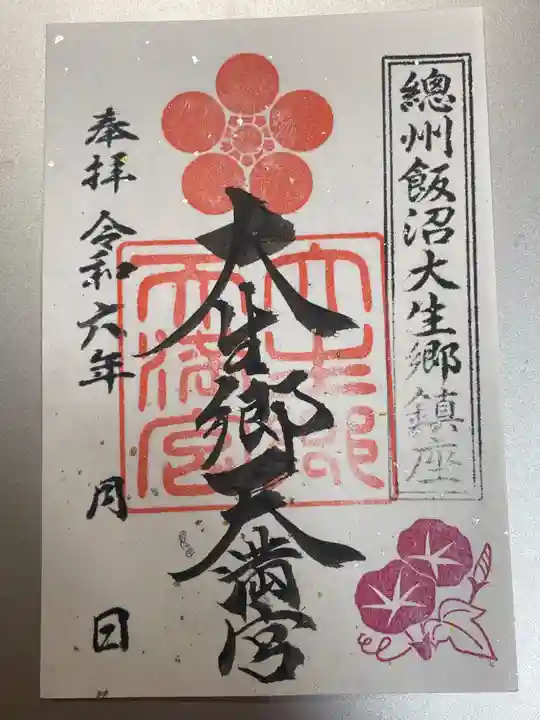 總州飯沼大生郷鎮座
大生郷天満宮
大生郷天満宮
奉拝 令和六年 月 日